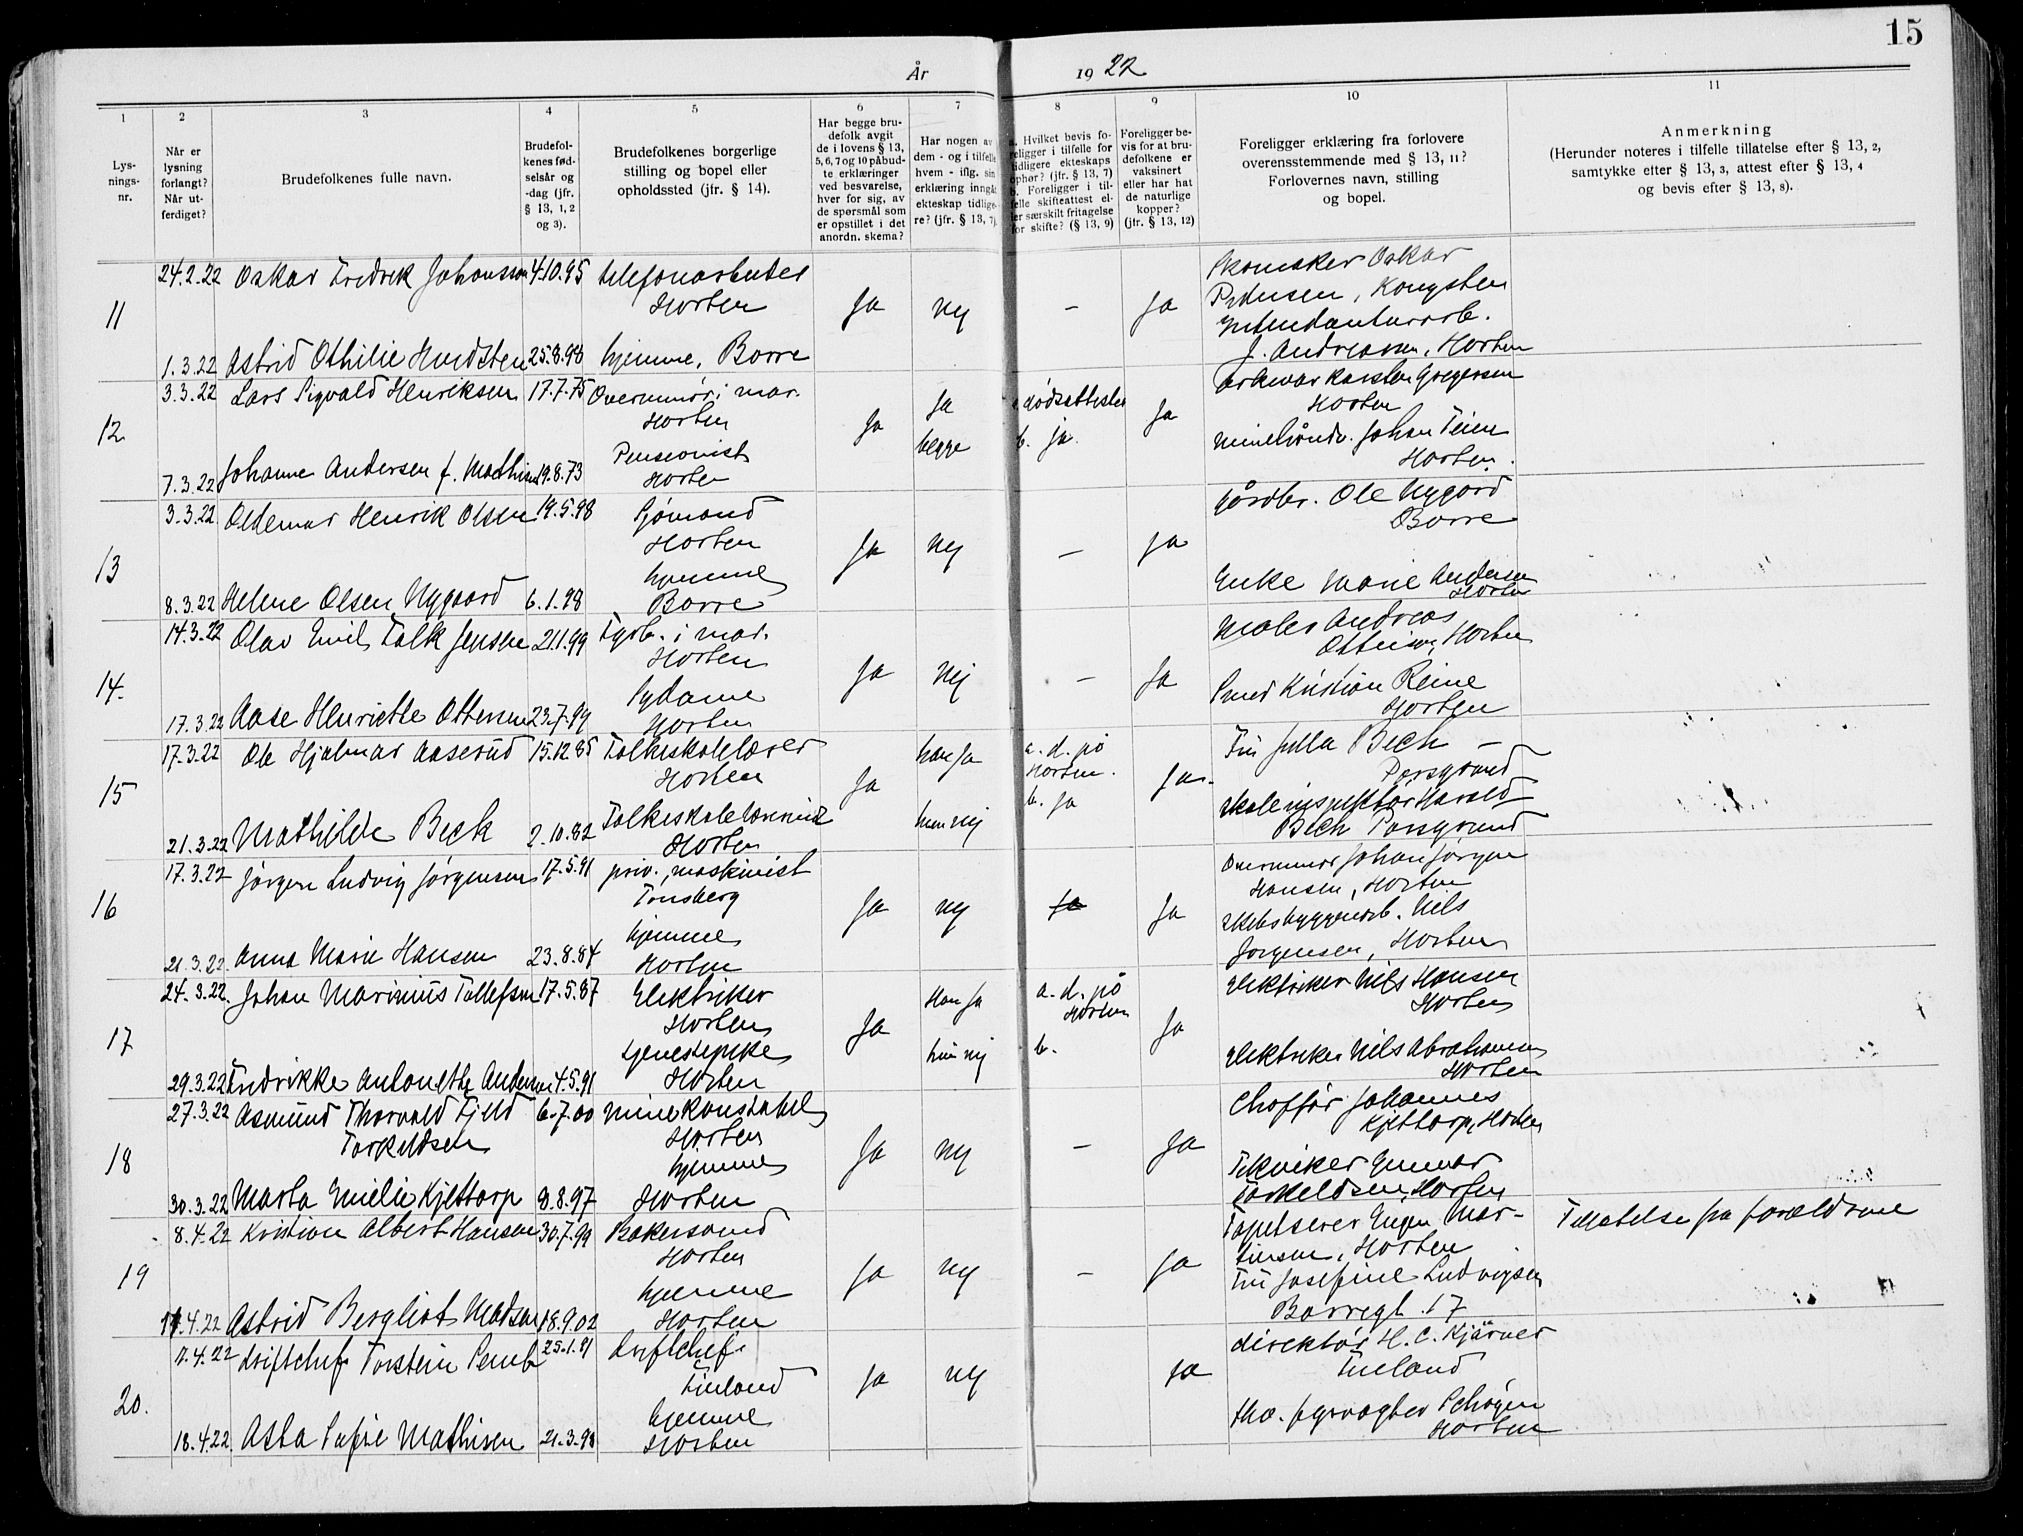 15
År 1922
1
2
3
4
5
6
7
8
9
10
11
Lys-
nings-
nr.
Når er
lysning
forlangt?
Når ut-
ferdiget?
Brudefolkenes fulle navn.
Brudefol-
kenes fød-
selsår og
-dag (jfr.
§ 13, 1, 2
og 3).
Brudefolkenes borgerlige
stilling og bopel eller
opholdssted (jfr. § 14).
Har begge bru-
defolk avgit
de i lovens § 13,
5, 6, 7 og 10 påbud-
te erklæringer
ved besvarelse,
hver for sig, av
de spørsmål som
er opstillet i det
anordn. skema?
Har nogen av
dem - og i tilfelle
hvem - iflg. sin
erklæring inngåt
ekteskap tidlige-
re? (jfr. § 13, 7)
a. Hvilket bevis fo-
religger i tilfelle for
tidligere ekteskaps
ophør? (jfr. § 13, 7)
b. Foreligger i til-
felle skifteattest el-
ler særskilt fritagelse
for skifte? (§ 13, 9)
Foreligger be-
vis for at bru-
defolkene er
vaksinert
eller har hat
de naturlige
kopper?
(jfr. § 13, 12)
Foreligger erklæring fra forlovere
overensstemmende med § 13, 11?
Forlovernes navn, stilling
og bopel.
Anmerkning
(Herunder noteres i tilfelle tillatelse efter § 13, 2,
samtykke efter § 13, 3, attest efter § 13, 4
og bevis efter § 13, 8).
11
24.2.22 Oskar Fredrik Johansson 4.10.95 telefonarbeider
Horten
Ja nej - Ja
1.3.22 Astrid Othilie Hvidsten 25.8.98 hjemme, Borre
Skomaker Oskar
Pedersen, Kongsten
Intendanturarb.
J. Andreasen, Horten
12
3.3.22 Lars Sigvald Henriksen 17.7.75 Overminør i mar.
Horten
Ja
Ja
begge
a. dødsattester
b. ja
Ja
7.3.22 Johanne Andersen f. Mathisen 19.8.73 Pensionist
Horten
Karsten Gregersen
Horten
Johan Teien
Horten.
13
3.3.22 Oldemar Henrik Olsen 19.5.98 Sjømand
Horten
Ja nej - ja
8.3.22 Helene Olsen Nygaard 6.1.98 hjemme
Borre
Gårdbr. Ole Nygård
Borre
Enke Marie Andersen
Horten
14.
14.3.22 Olav Emil Falk Jensen 21.1.99 Fyrb. i mar.
Horten
Ja Nej - Ja
17.3.22 Aase Henriette Ottersen 23.7.99 Sydame
Horten
Maler Andreas
Ottersen, Horten
Smed Kristian Reine
Horten
15
17.3.22 Ole Hjalmar Aaserud 15.12.85 Folkeskolelærer
Horten
Ja
han ja
hun nej
a. d. på
Horten.
b. ja
Ja.
21.3.22 Mathilde Beck 2.10.82 Folkeskolelærerinde
Horten
Fru Julla Bech -
Porsgrund
skoleinspektør Harald
Bech Porsgrund
16
17.3.22 Jørgen Ludvig Jørgensen 17.5.91 priv. maskinist
Tønsberg
Ja nej ja Ja
21.3.22 Anna Marie Hansen 23.8.84 hjemme
Horten
Overminør Johan Jørgen
Hansen, Horten
skibsbyggerarb. Nils
Jørgensen, Horten
17
24.3.22. Johan Marinius Tollefsen 17.5.87 Elektriker
Horten
Ja
Han ja
hun nej
a. d. på
Horten
b.
Ja
29.3.22 Fredrikke Antonette Andersen 4.5.91 tjenestepike
Horten
elektriker Nils Hansen
Horten
elektriker Nils Abrahamsen
Horten
18
27.3.22 Asmund Thorvald Fjeld
Torkeldsen
6.7.00 minekonstabel
Horten
Ja nej - Ja
30.3.22 Marta Emilie Kjettorp 8.8.97 hjemme
Horten
Chaffør Johannes
Kjettorp, Horten
Tekniker Gunnar
Torkeldsen, Horten
19
8.4.22 Kristian Albert Hansen 30.7.99 Bakersvend
Horten
Ja nej - Ja
11.4.22 Astrid Bergliot Madsen 18.9.02 hjemme
Horten
Tapetserer Eugen Mar-
tinsen, Horten
Fru Josefine Ludvigsen
Borregt. 17
Tillatelse fra forældrene
20.
driftchef Torstein 25.1.91 driftchef
Finland
Ja nej ja
18.4.22 Asta Sofie Mathisen 21.3.98 hjemme
Horten
direktør H. C. Kjærner
Finland
fyrvogter
Horten